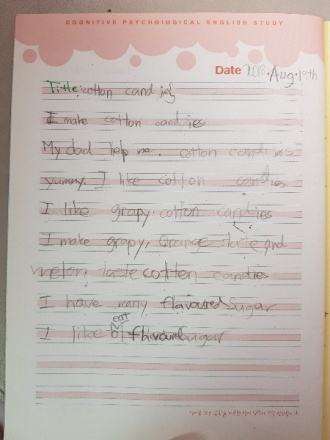 COGNITIVE PSYCHOLOGICAL ENGLISH STUDY
Date 2018. Aug. 19th
Title: cotton candies
I make cotton candies
My dad help me. cotton candies
yummy. I like cotton candies
I like grapy cotton candies
I make grapy, orange taste and
melon taste cotton candies
I have many flavoured Sugar
I like eat of flavoured sugar